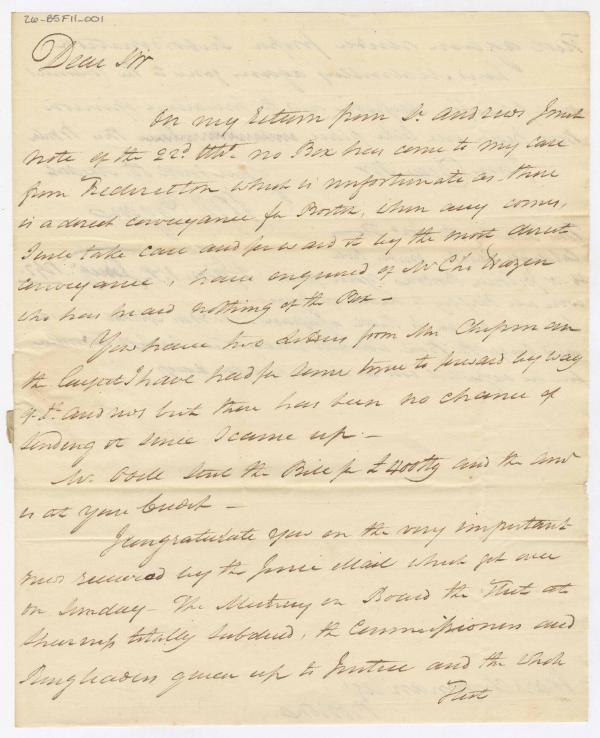 26-B5F11-001
Dear Sir
On my Return from St. Andrews I met
note of the 22d. Ulto. no Box has come to my care
from Fredericton which is unfortunate as there
is a direct conveyance for Boston, when any comes,
I will take care and forward it by the most direct
conveyance, I have enquired of Mr Chs. Hazen
who has heard nothing of the Box —
You have two Letters from Mr. Chipman
the largest I have had for some time to forward by way
of St. Andrews but there has been no chance of
sending it since I came up. —
Mr. Odell sent the Bill for £400 Stg and the Amt
is at your Credit —
I congratulate you on the very important
news received by the June Mail which got over
on Sunday — The Mutiny on Board the Fleet at
Sheerness totally Subdued, the Commissioners and
Ringleaders given up to Justice and the whole
Fleet